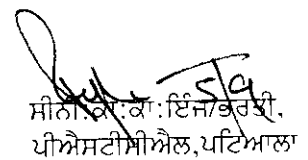 ਸੀਨੀ:ਕਾ:ਕਾ:ਇੰਜ/ਭਰਤੀ,
ਪੀਐਸਟੀਸੀਐਲ,ਪਟਿਆਲਾ